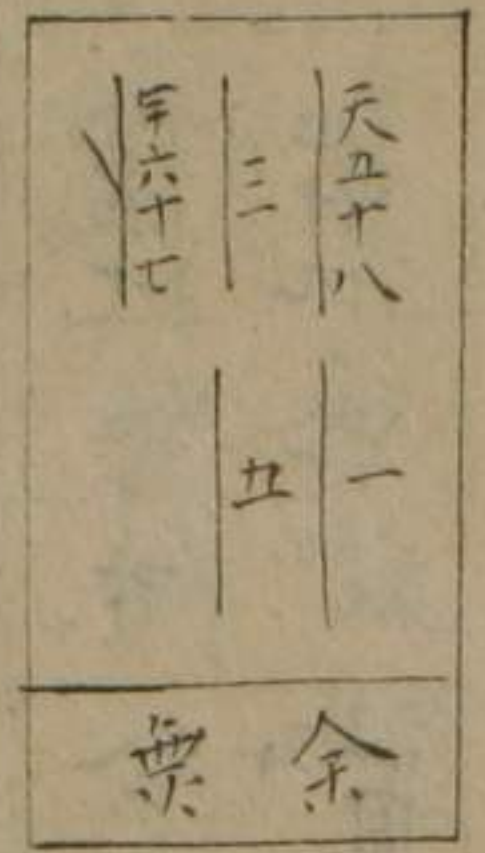 天五十八
三
年六十七
一
五
余
無